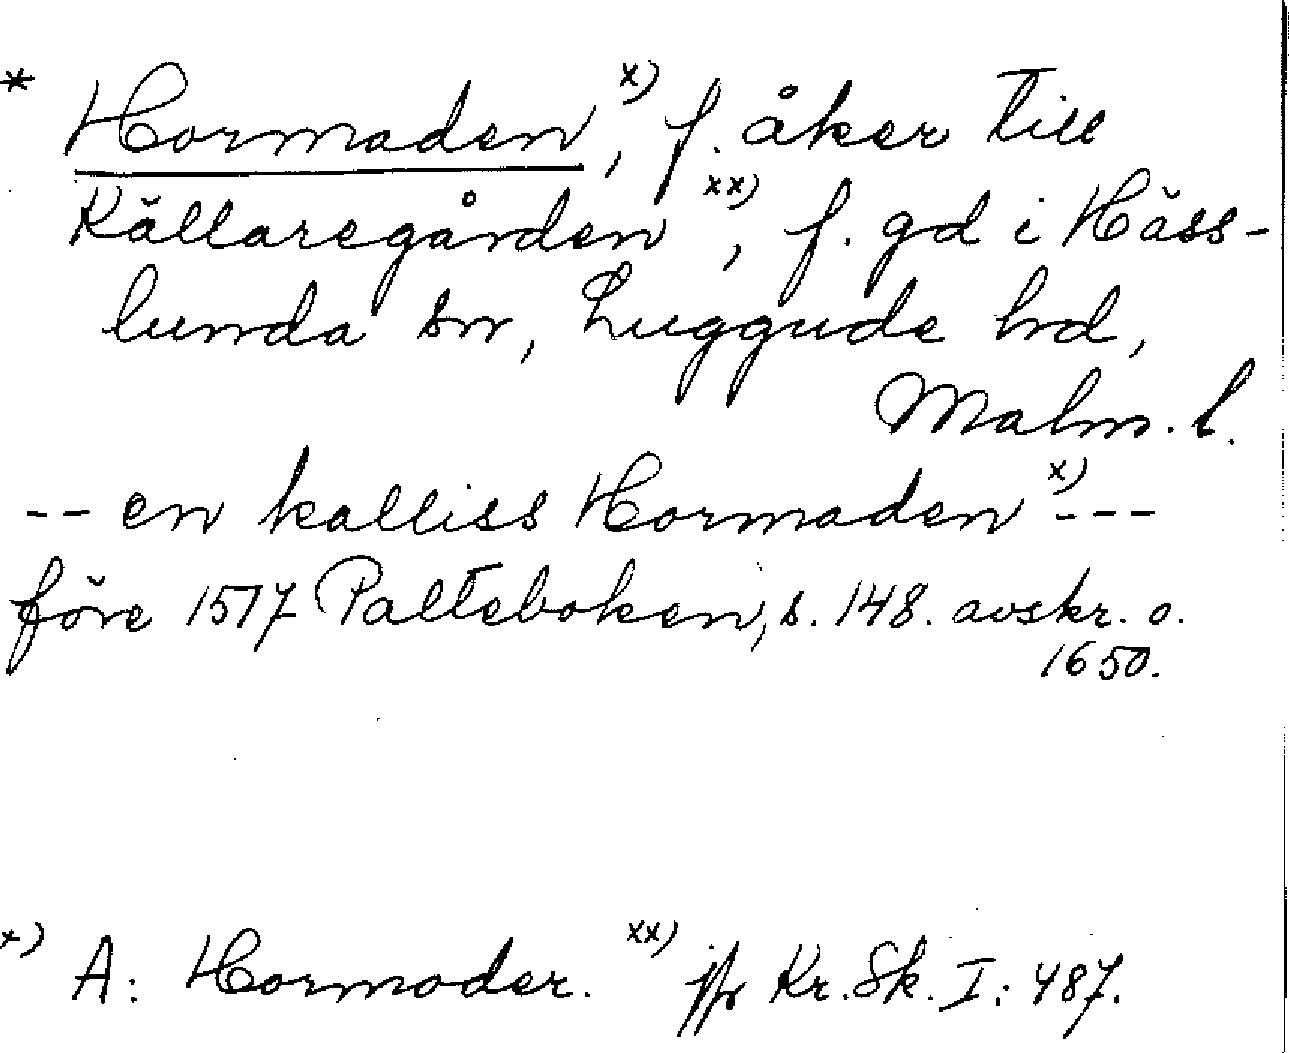 * Hormaden x), f. åker till
Källaregården xx), f. gd i Häss-
lunda sn, Luggude hd,
Malm. l.
-- en kalliss Hormaden x) ---
före 1517 Palteboken, s. 148. avskr. o.
1650.
x) A: Hormoder. xx) jfr Kr. Sk. I: 487.